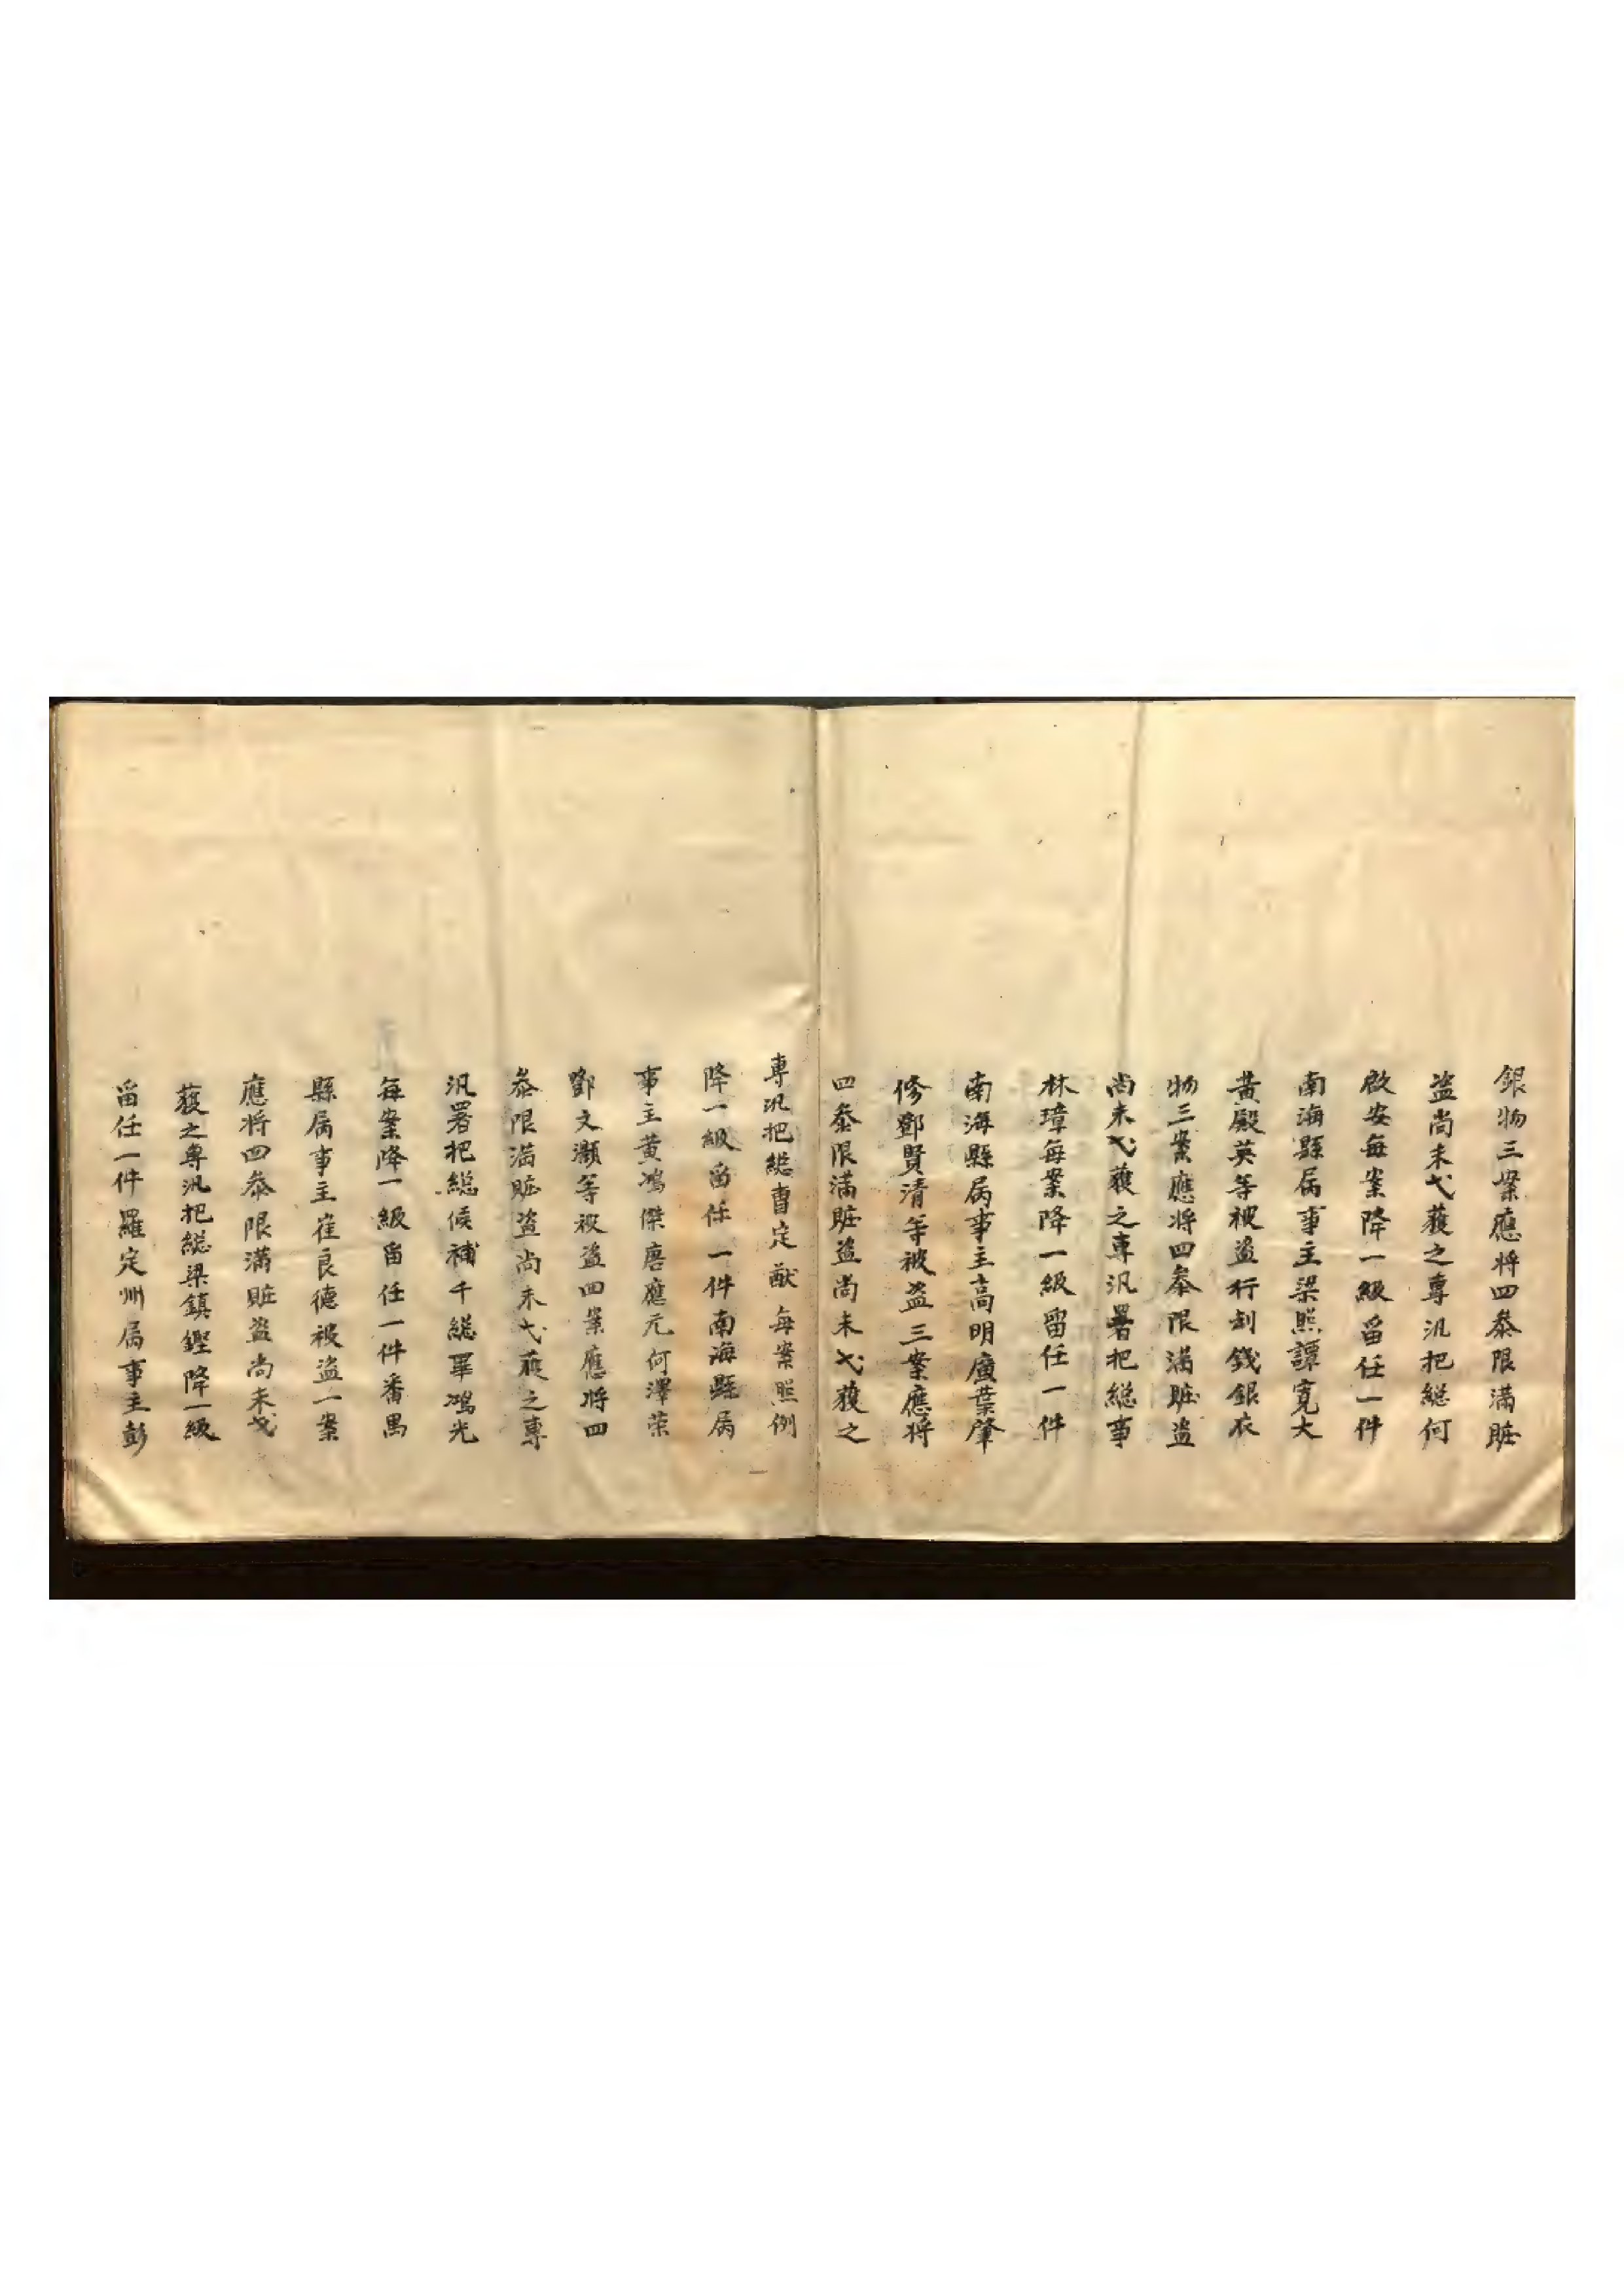 銀物三案應將四叅限滿賍
盗尚未弋獲之專汛把総何
啟安每案降一級留任一件
南海縣属事主梁熙譚寬大
黃殿英等被盗行刦錢銀衣
物三案應將四叅限滿賍盗
尚未弋獲之專汛署把総事
林璋每案降一級留任一件
南海縣属事主高明廣葉肇
修鄧賢清等被盗三案應將
四叅限滿賍盗尚未弋獲之
專汛把総曹定猷每案照例
降一級畱任一件南海縣属
事主黃鴻傑唐應元何澤荣
鄧文灝等被盗四案應將四
叅限滿賍盗尚未弋獲之專
汛署把総候補千総畢鴻光
每案降一級畱任一件番禺
縣属事主崔良德被盗一案
應將四叅限滿賍盗尚未弋
獲之專汛把総梁鎮鏗降一級
畱任一件羅定州属事主彭